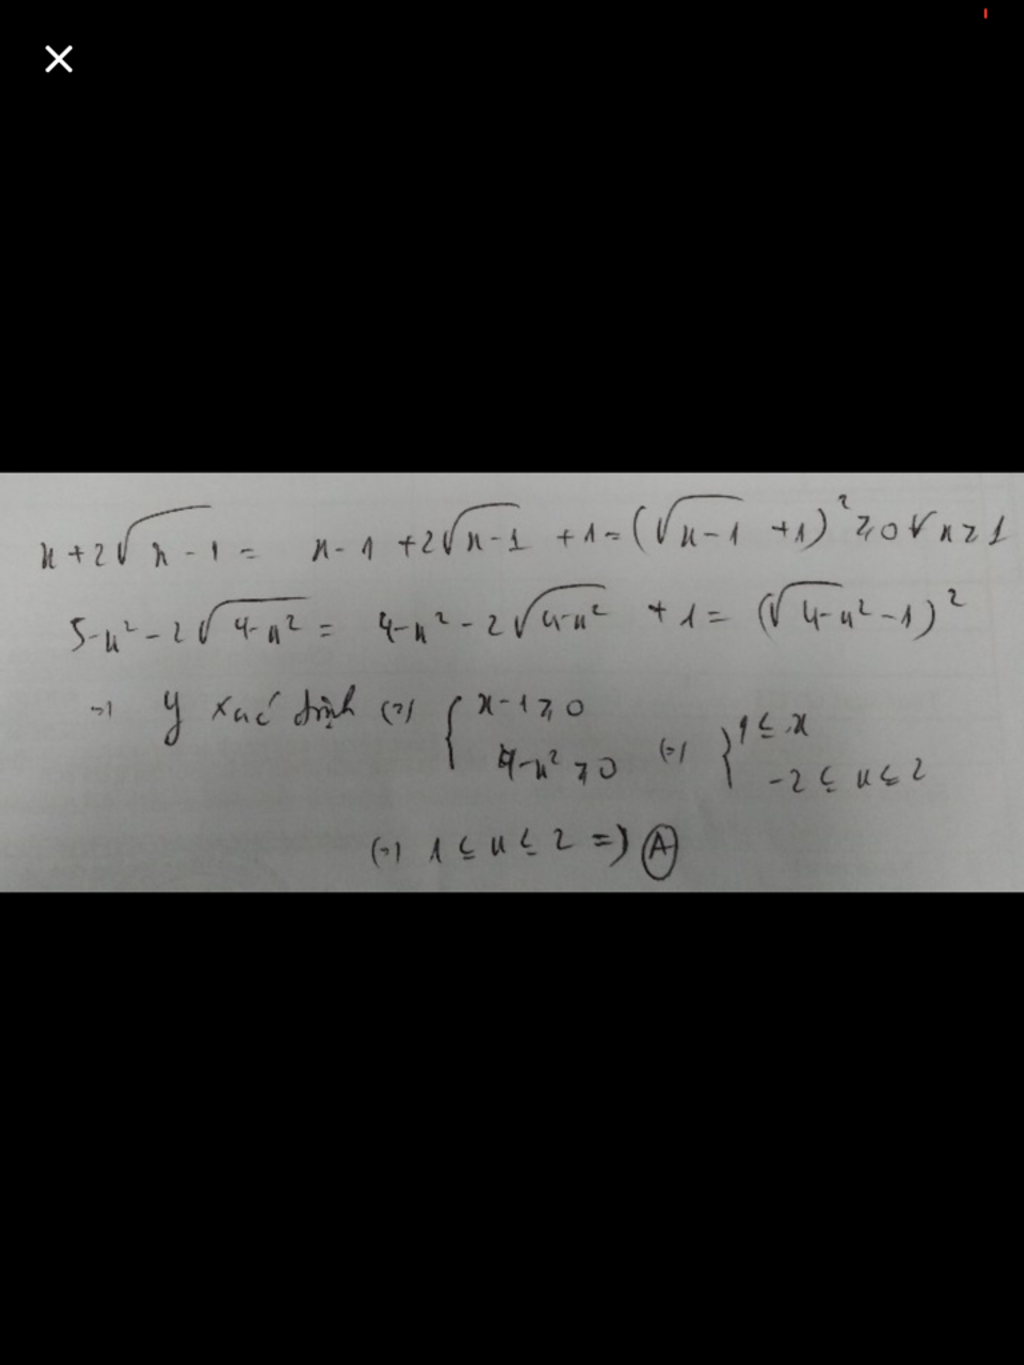 x + 2√(x - 1) = x - 1 + 2√(x - 1) + 1 = (√(x - 1) + 1)² ≥ 0 ∀ x ≥ 1
5 - x² - 2√(4 - x²) = 4 - x² - 2√(4 - x²) + 1 = (√(4 - x²) - 1)²
=> y xác định (=) { x - 1 ≥ 0
4 - x² ≥ 0 (=) { 1 ≤ x
-2 ≤ x ≤ 2
(=) 1 ≤ x ≤ 2 => A